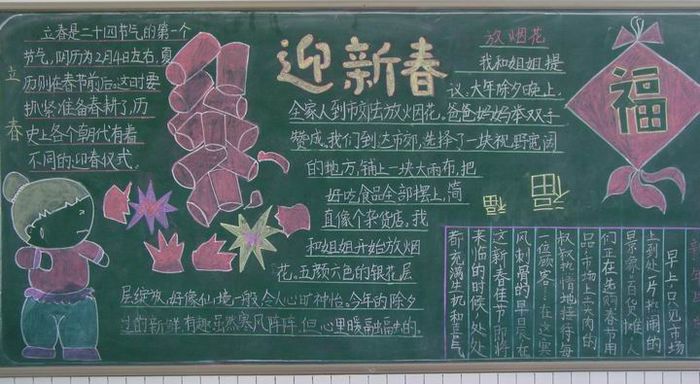 立春
立春是二十四节气的第一个
节气,阴历为2月4日左右,夏
历则在春节前后。这时要
抓紧准备春耕了,历
史上各个朝代有着
不同的迎春仪式。
迎新春
放烟花
我和姐姐提
议,大年除夕晚上,
全家人到市郊去放烟花。爸爸妈妈举双手
赞成。我们到达市郊,选择了一块视野宽阔
的地方,铺上一块大雨布,把
好吃食品全部摆上,简
直像个杂货店,我
和姐姐开始放烟
花。五颜六色的银花层
层绽放,好像仙境一般,令人心旷神怡。今年的除夕
过的新鲜有趣,虽然寒风阵阵,但心里暖融融的。
福
福
福
早上,只见市场
上到处一片热闹的
景象,百货摊,人
们正在选购春节用
品,市场上卖肉的
叔叔热情地招待每
一位顾客,在这寒
风刺骨的早晨,在
这新春佳节即将
来临的时候,处处
都充满生机和喜气